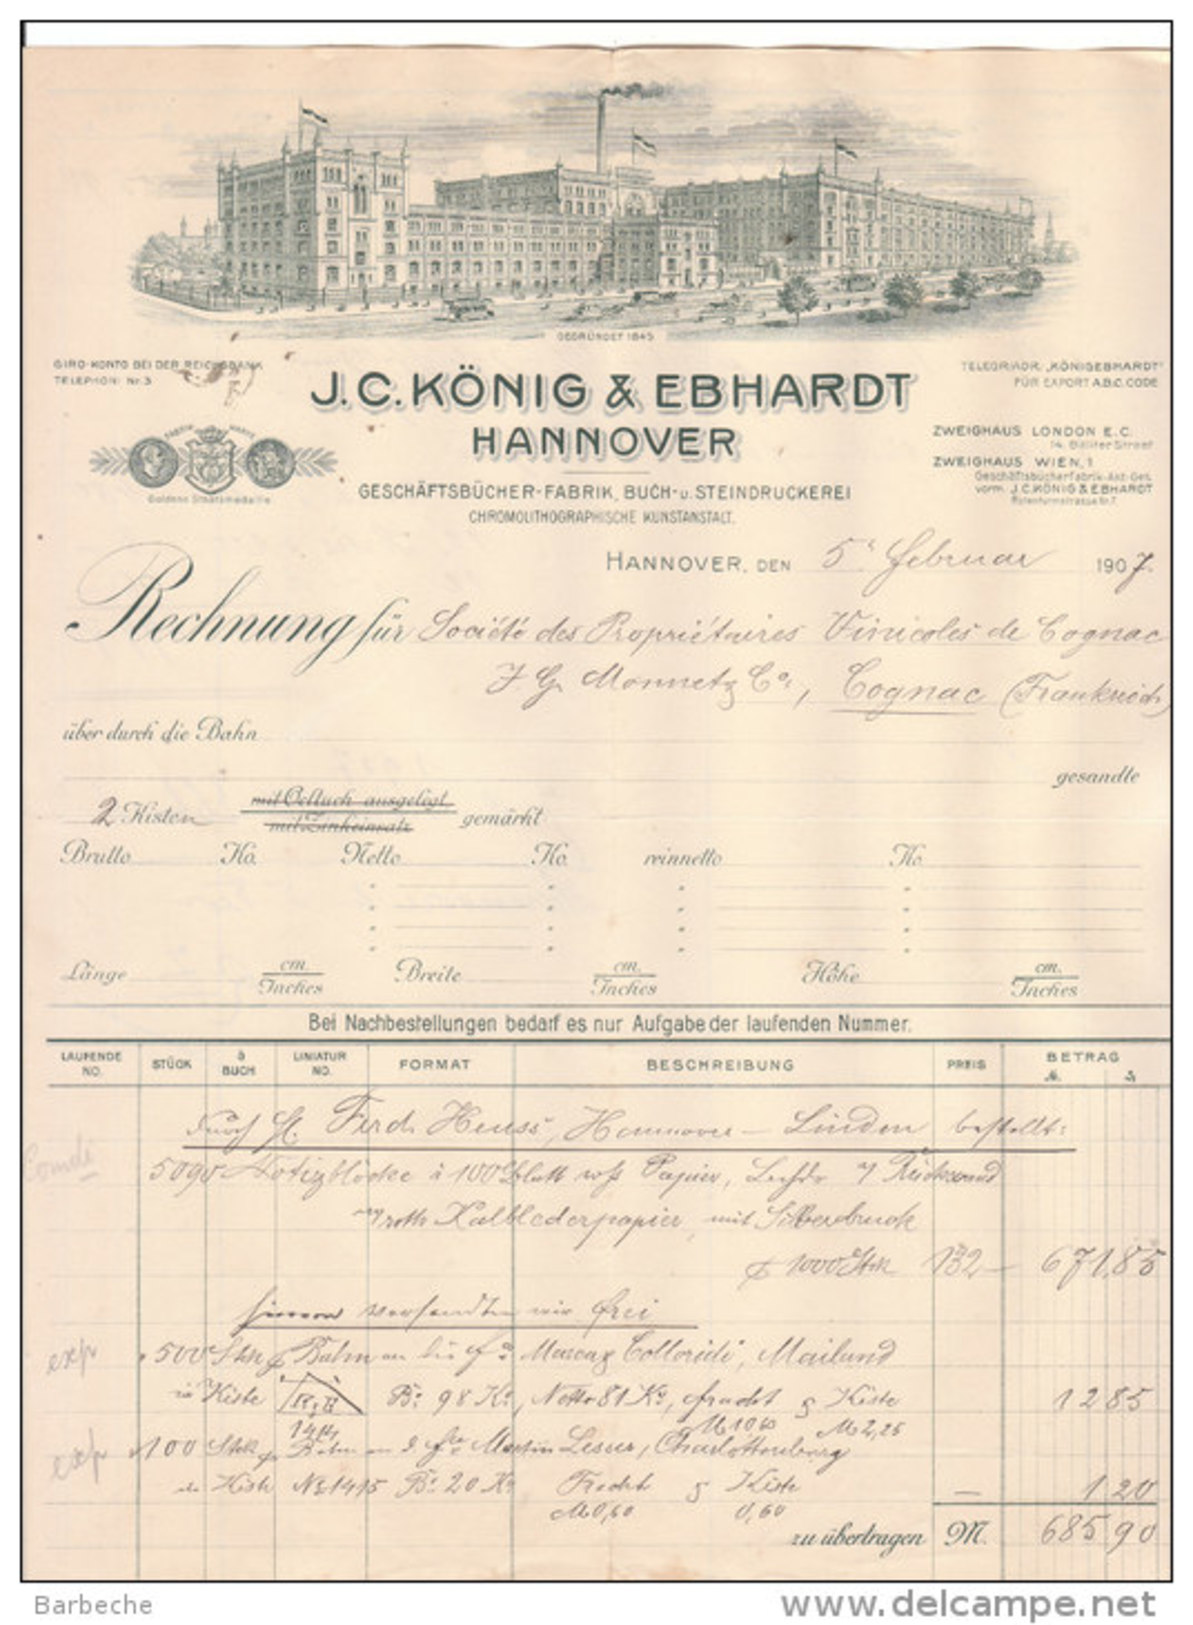 GEGRÜNDET 1845
GIRO-KONTO BEI DER REICHSBANK
TELEPHON: Nr. 3
TELEGR.-ADR. „KÖNIGEBHARDT"
FÜR EXPORT A.B.C. CODE
J. C. KÖNIG & EBHARDT
HANNOVER
FABRIK MARKE
Goldene Staatsmedaille
ZWEIGHAUS LONDON E.C.
14. Billiter Street
ZWEIGHAUS WIEN, 1
Geschäftsbücherfabrik-Akt.-Ges.
vorm. J.C. KÖNIG & EBHARDT
GESCHÄFTSBÜCHER-FABRIK, BUCH- u. STEINDRUCKEREI
CHROMOLITHOGRAPHISCHE KUNSTANSTALT.
HANNOVER, DEN 5. Februar 1907.
Rechnung für Société des Propriétaires Vinicoles de Cognac
J G Monnet & Co, Cognac (Frankreich)
über durch die Bahn
gesandte
2 Kisten mit Oeltuch ausgelegt mit Zinkeinsatz gemärkt
Brutto Ko. Netto Ko. reinnetto Ko.
Länge cm. Inches Breite cm. Inches Höhe cm. Inches
Bei Nachbestellungen bedarf es nur Aufgabe der laufenden Nummer.
LAUFENDE NO. STÜCK à BUCH LINIATUR NO. FORMAT BESCHREIBUNG PREIS BETRAG
durch Ferd. Heuss, Hannover - Linden bestellt:
5090 Notizblocke à 100 Blatt Papier,
roth Kalblederpapier, mit Silberdruck
1000 Stck 132 — 671,85
versandten wir frei
exp 500 Stck Bahn an Mailand
in Kiste B: 98 Ko, Netto 81 Ko, Fracht & Kiste 12 85
1414 M 10 60 M 2,25
exp 100 Stck Bahn an Martin Lesser, Charlottenburg
Kiste No 1415 B: 20 Ko Fracht & Kiste — 1 20
M 0,60 0,60
zu übertragen M. 685 90
Barbeche
www.delcampe.net